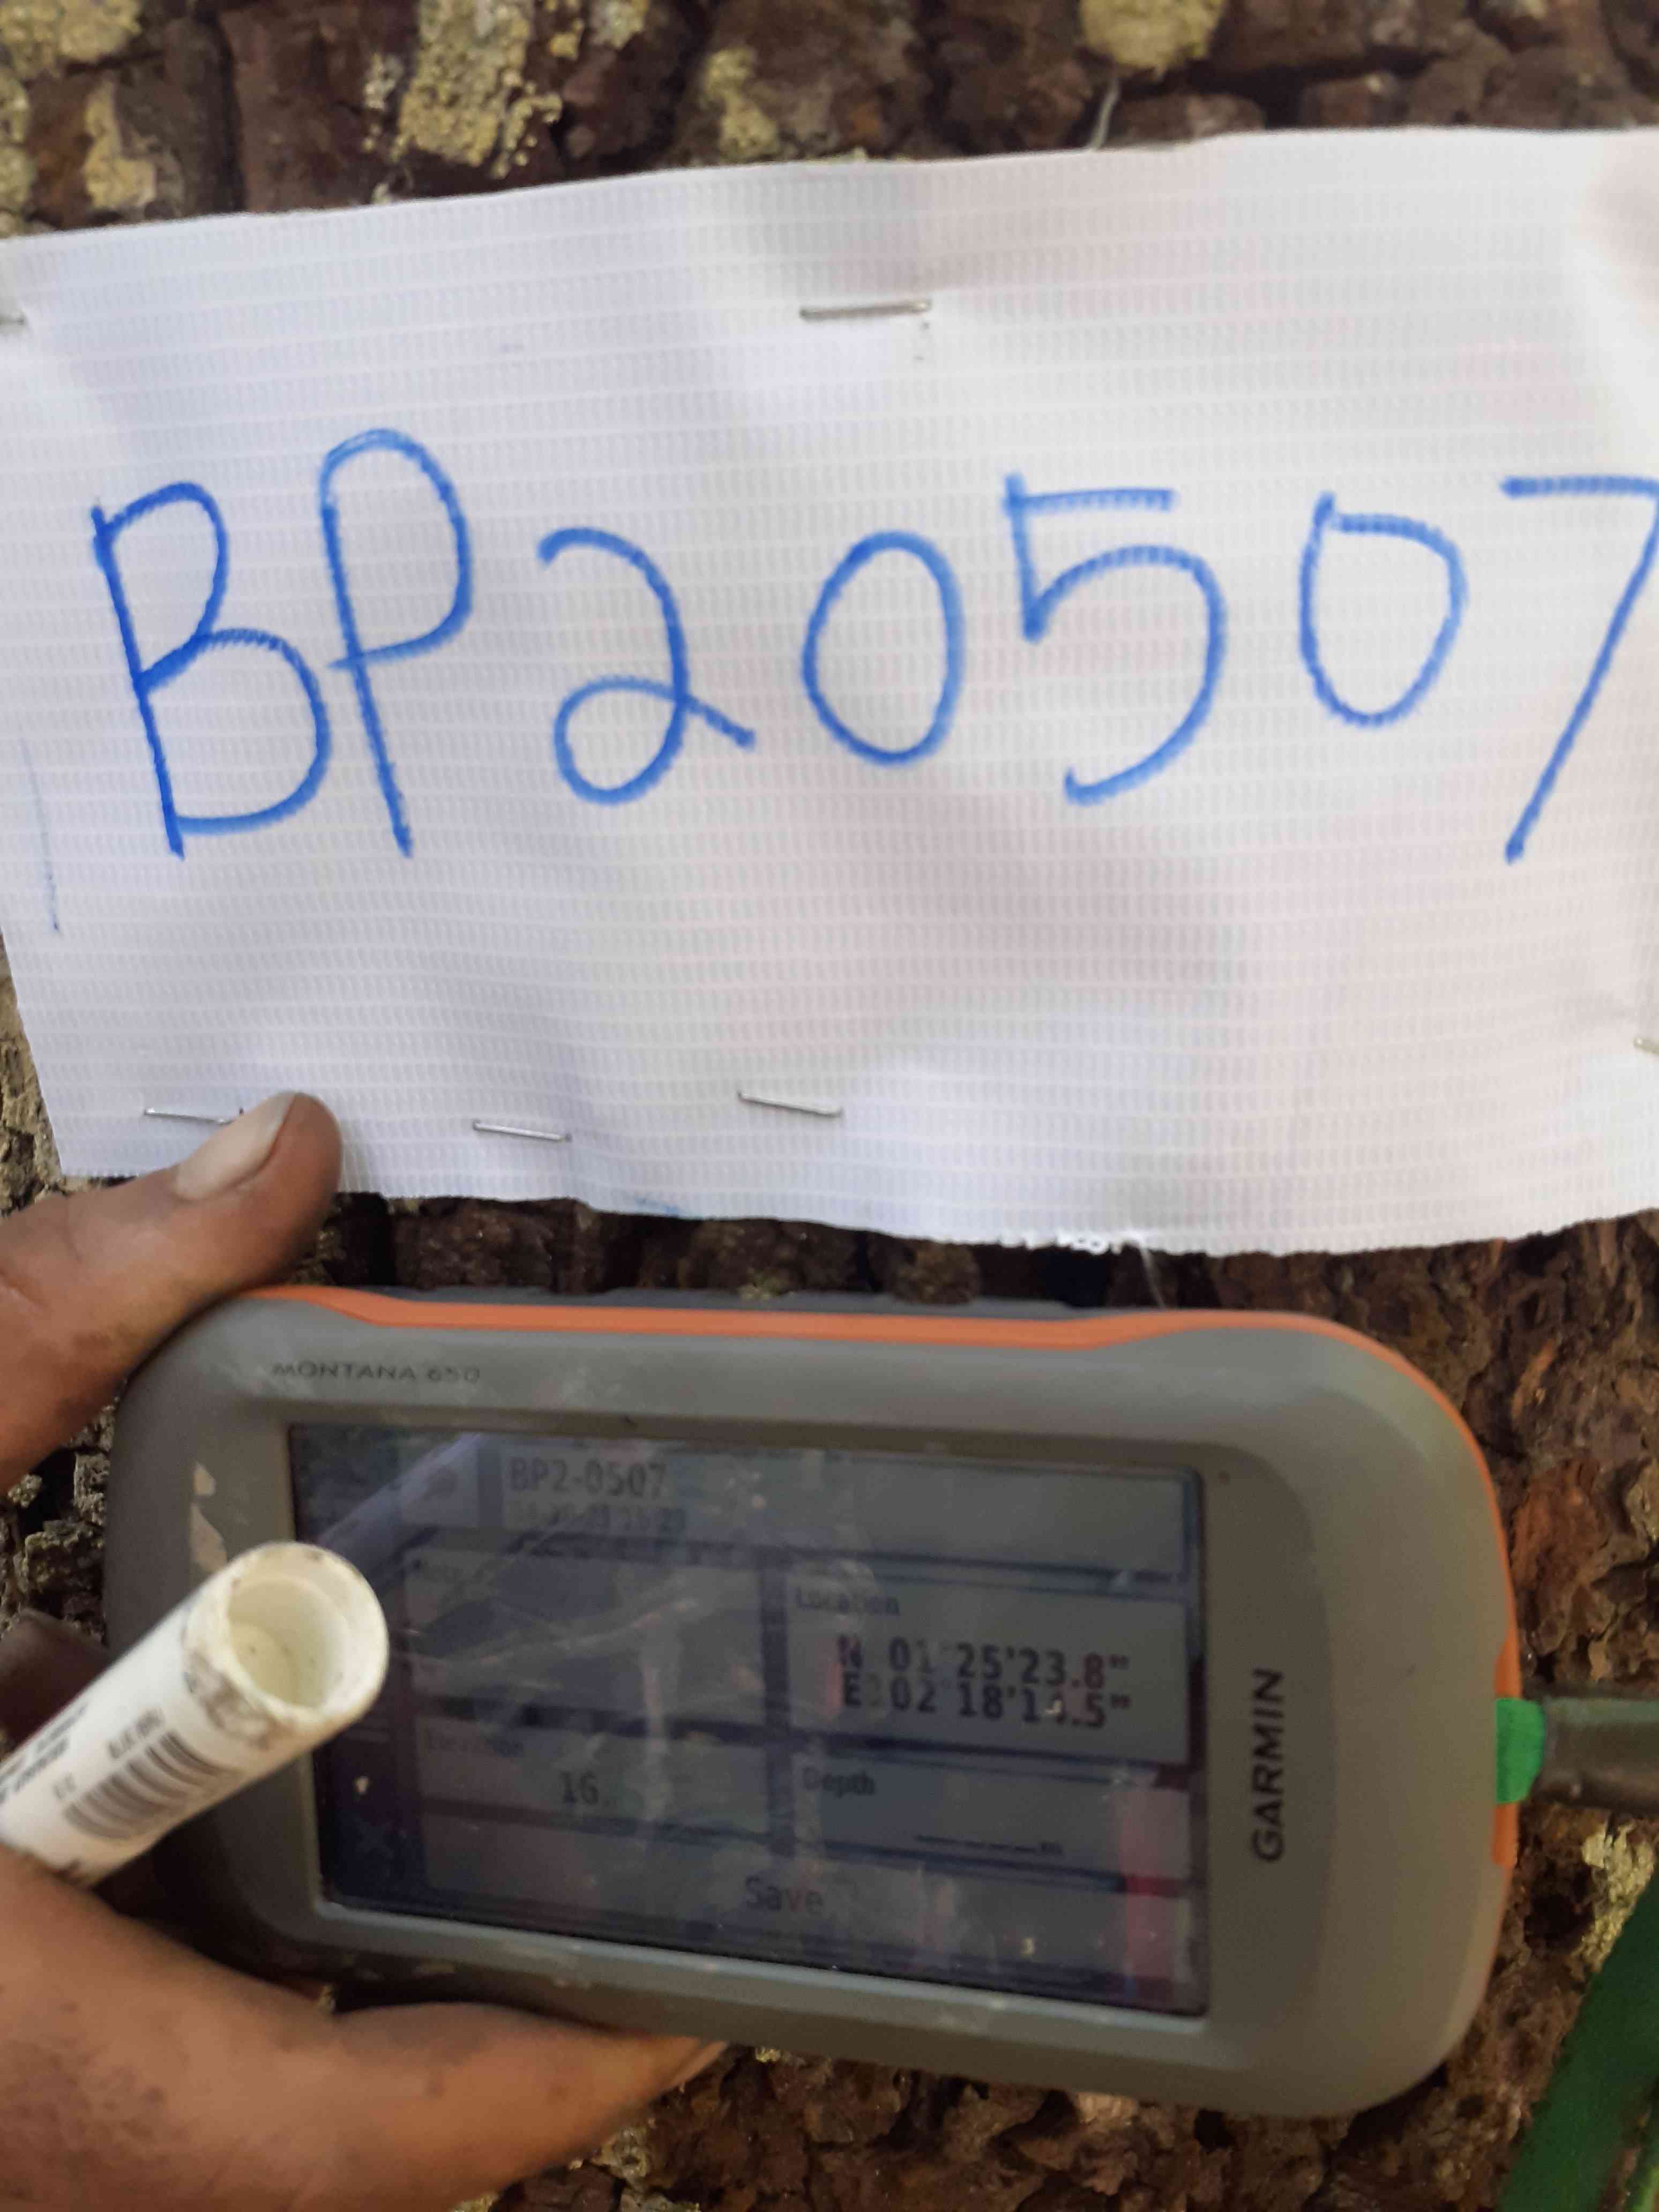 BP20507
MONTANA 650
BP2-0507
Location
N 01°25'23.8"
Elevation
16
Depth
Save
GARMIN